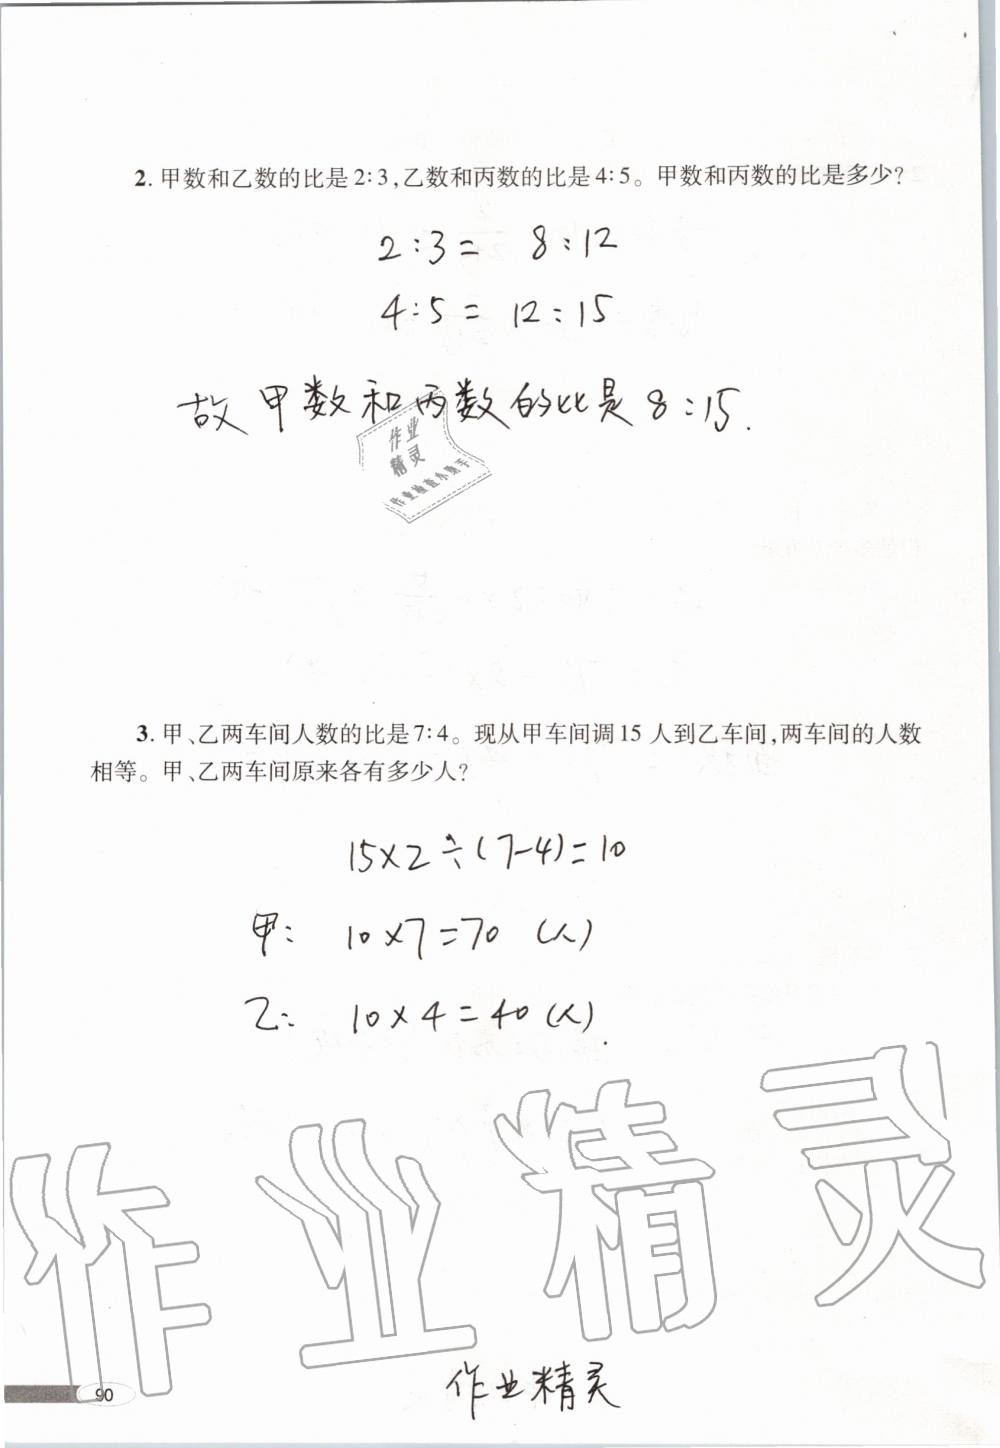 2. 甲数和乙数的比是2∶3,乙数和丙数的比是4∶5。甲数和丙数的比是多少?
2:3= 8:12
4:5= 12:15
故甲数和丙数的比是8:15.
作业
精灵
作业检查小助手
3. 甲、乙两车间人数的比是7∶4。现从甲车间调15人到乙车间,两车间的人数
相等。甲、乙两车间原来各有多少人?
15×2÷(7-4)=10
甲: 10×7=70 (人)
乙: 10×4=40 (人).
作业精灵
作业精灵
90